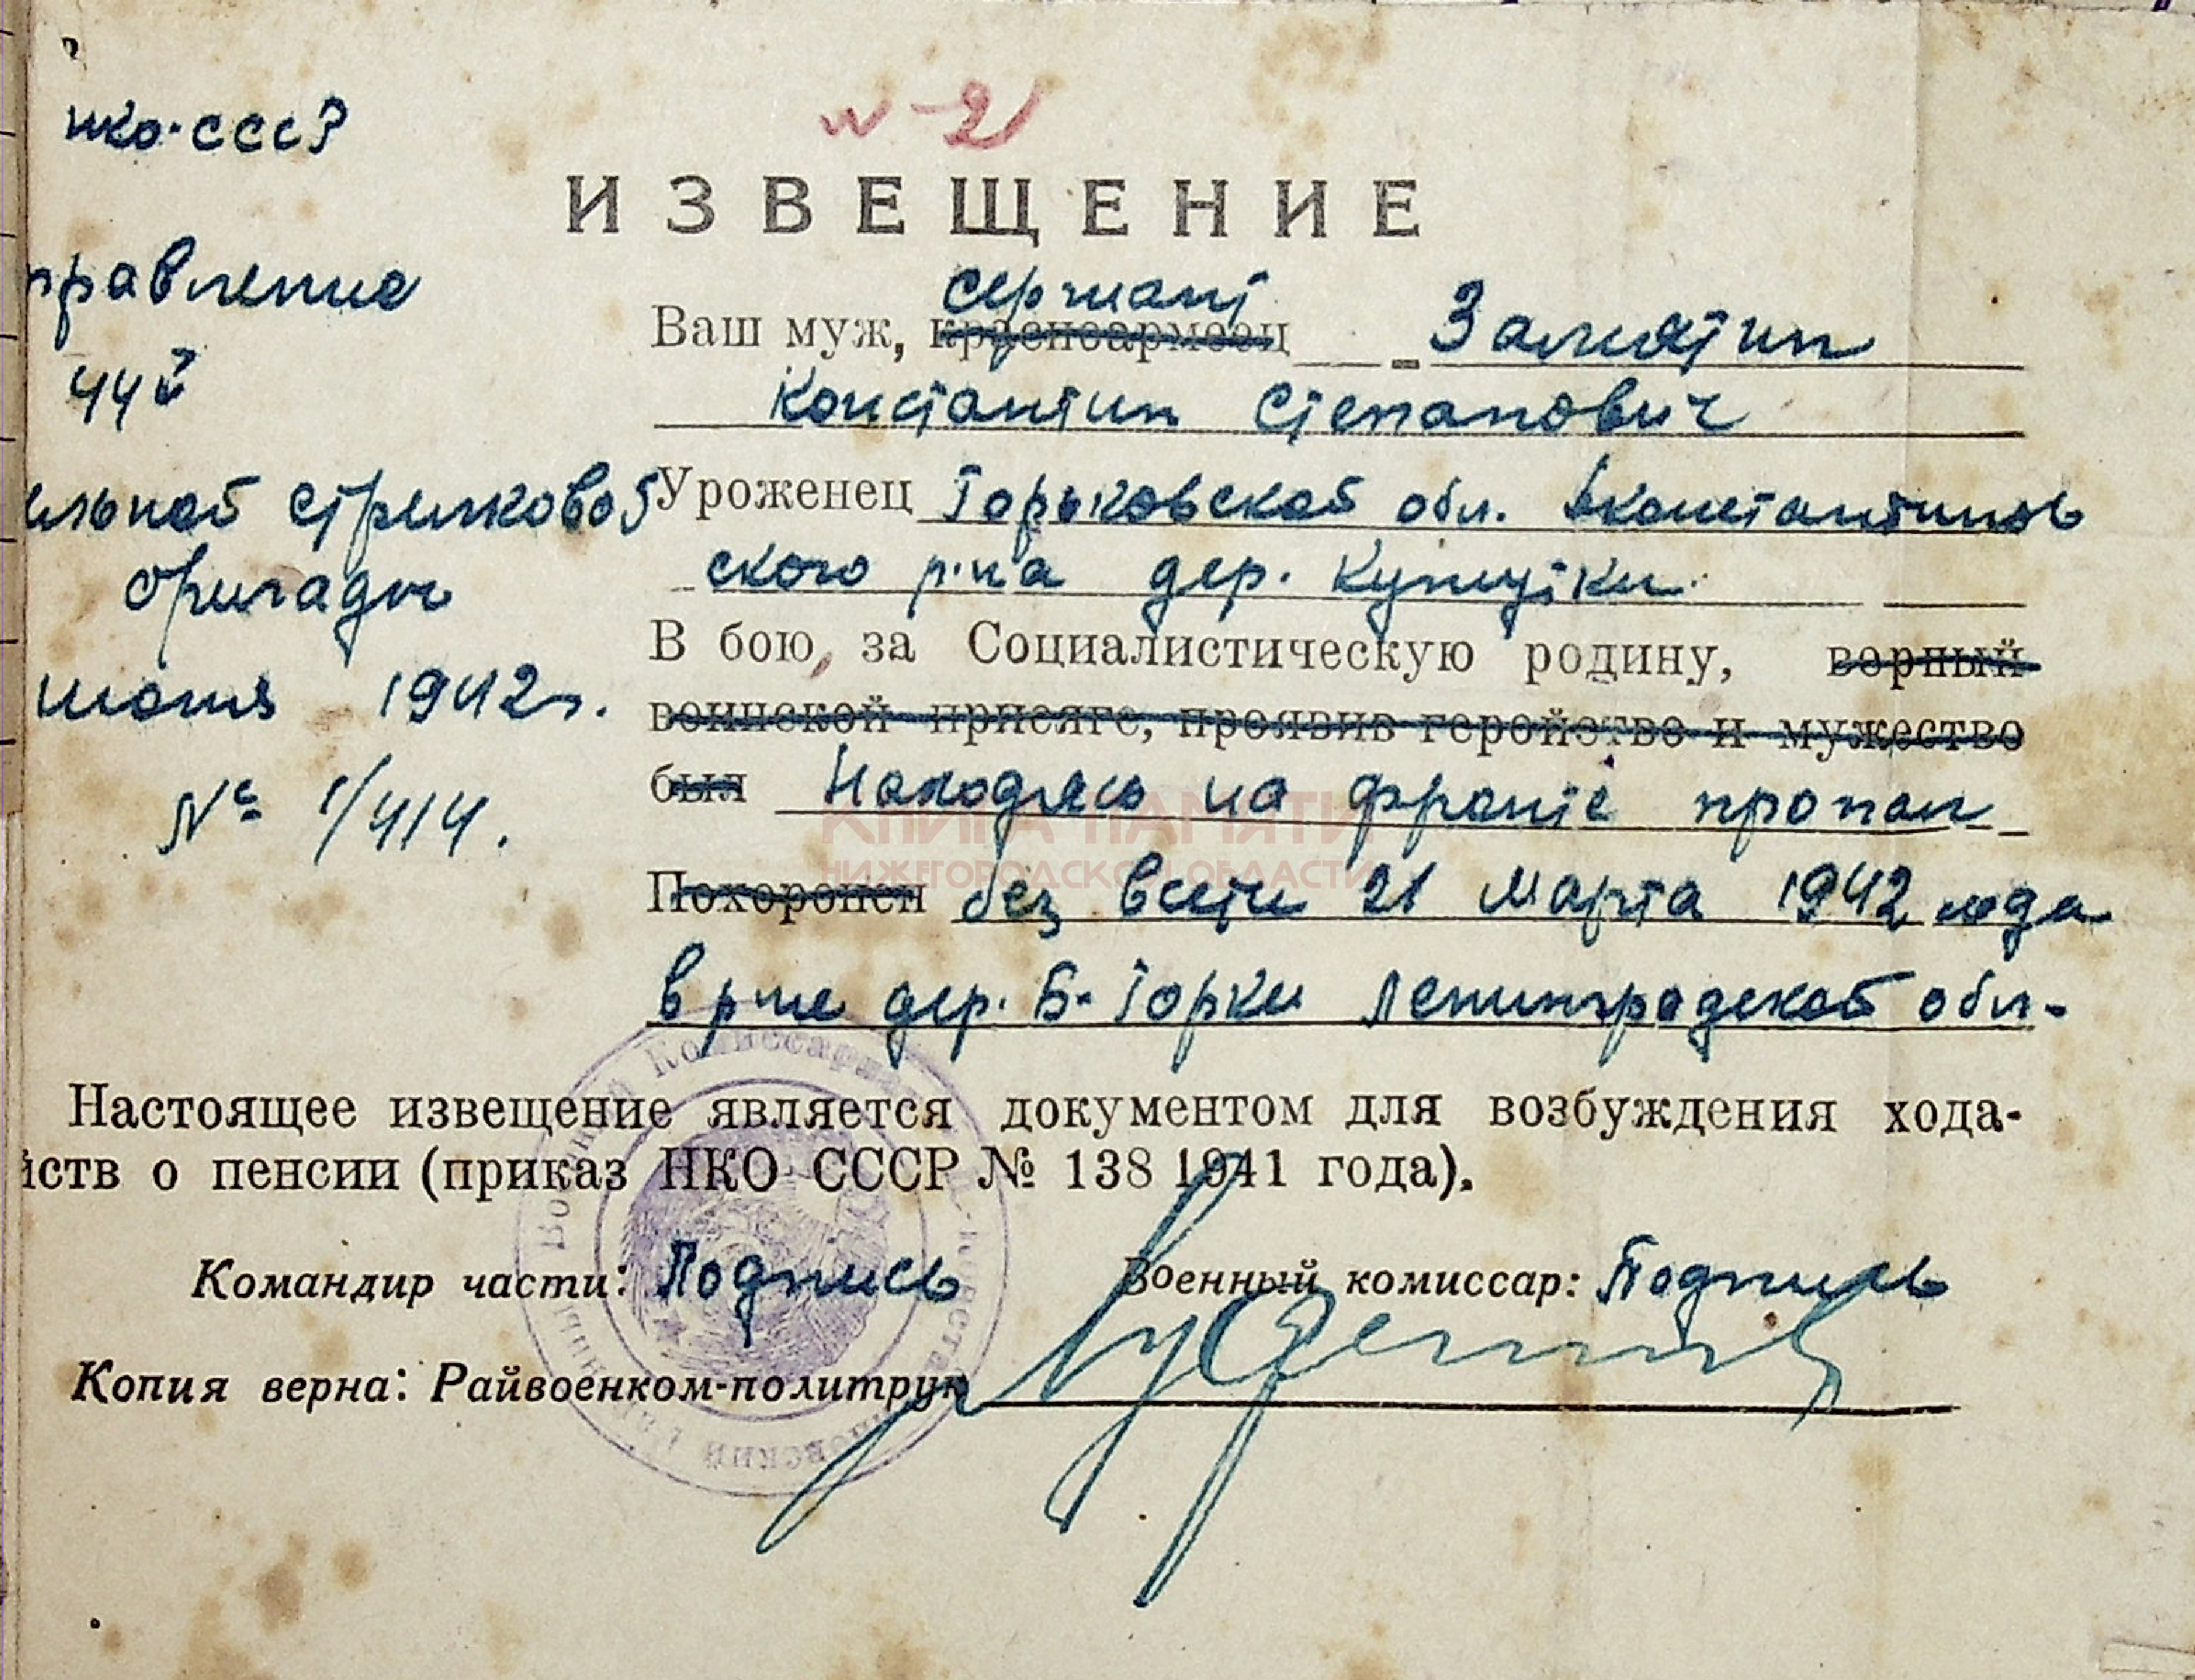 нко-СССР
№ 21
ИЗВЕЩЕНИЕ
правление
44й
ельной стрелковой
бригады
июня 1942 г.
№ 1/414.
сержант
Ваш муж, красноармеец Замятин
Константин Степанович
Уроженец Горьковской обл. Дконстантинов
ского р-на дер.
В бою, за Социалистическую родину, верный
воинской присяге, проявив геройство и мужество
был Находясь на фронте пропал
Похоронен без вести 21 марта 1942 года
в р-не дер. Б. Горки Ленинградской обл.
КНИГА ПАМЯТИ
НИЖЕГОРОДСКОЙ ОБЛАСТИ
Настоящее извещение является документом для возбуждения хода-
йств о пенсии (приказ НКО СССР № 138 1941 года).
Командир части: Подпись Военный комиссар: Подпись
Копия верна: Райвоенком-политрук